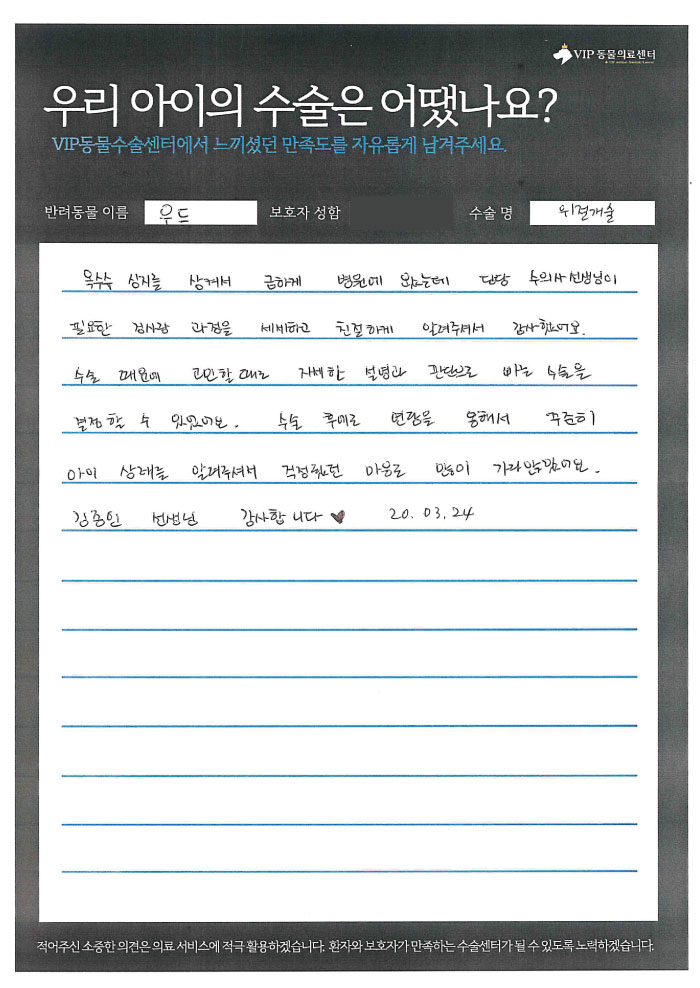 VIP 동물의료센터
우리 아이의 수술은 어땠나요?
VIP동물수술센터에서 느끼셨던 만족도를 자유롭게 남겨주세요.
반려동물 이름 우드 보호자 성함 수술 명 위절개술
옥수수 심지를 삼켜서 급하게 병원에 왔는데 담당 수의사 선생님이
필요한 검사랑 과정을 세세하고 친절하게 알려주셔서 감사했어요.
수술 때문에 고민할 때도 자세한 설명과 판단으로 바로 수술을
결정할 수 있었어요. 수술 후에도 연락을 통해서 꾸준히
아이 상태를 알려주셔서 걱정했던 마음도 많이 가라앉았어요.
김중인 선생님 감사합니다 ♥ 20. 03. 24
적어주신 소중한 의견은 의료 서비스에 적극 활용하겠습니다. 환자와 보호자가 만족하는 수술센터가 될 수 있도록 노력하겠습니다.